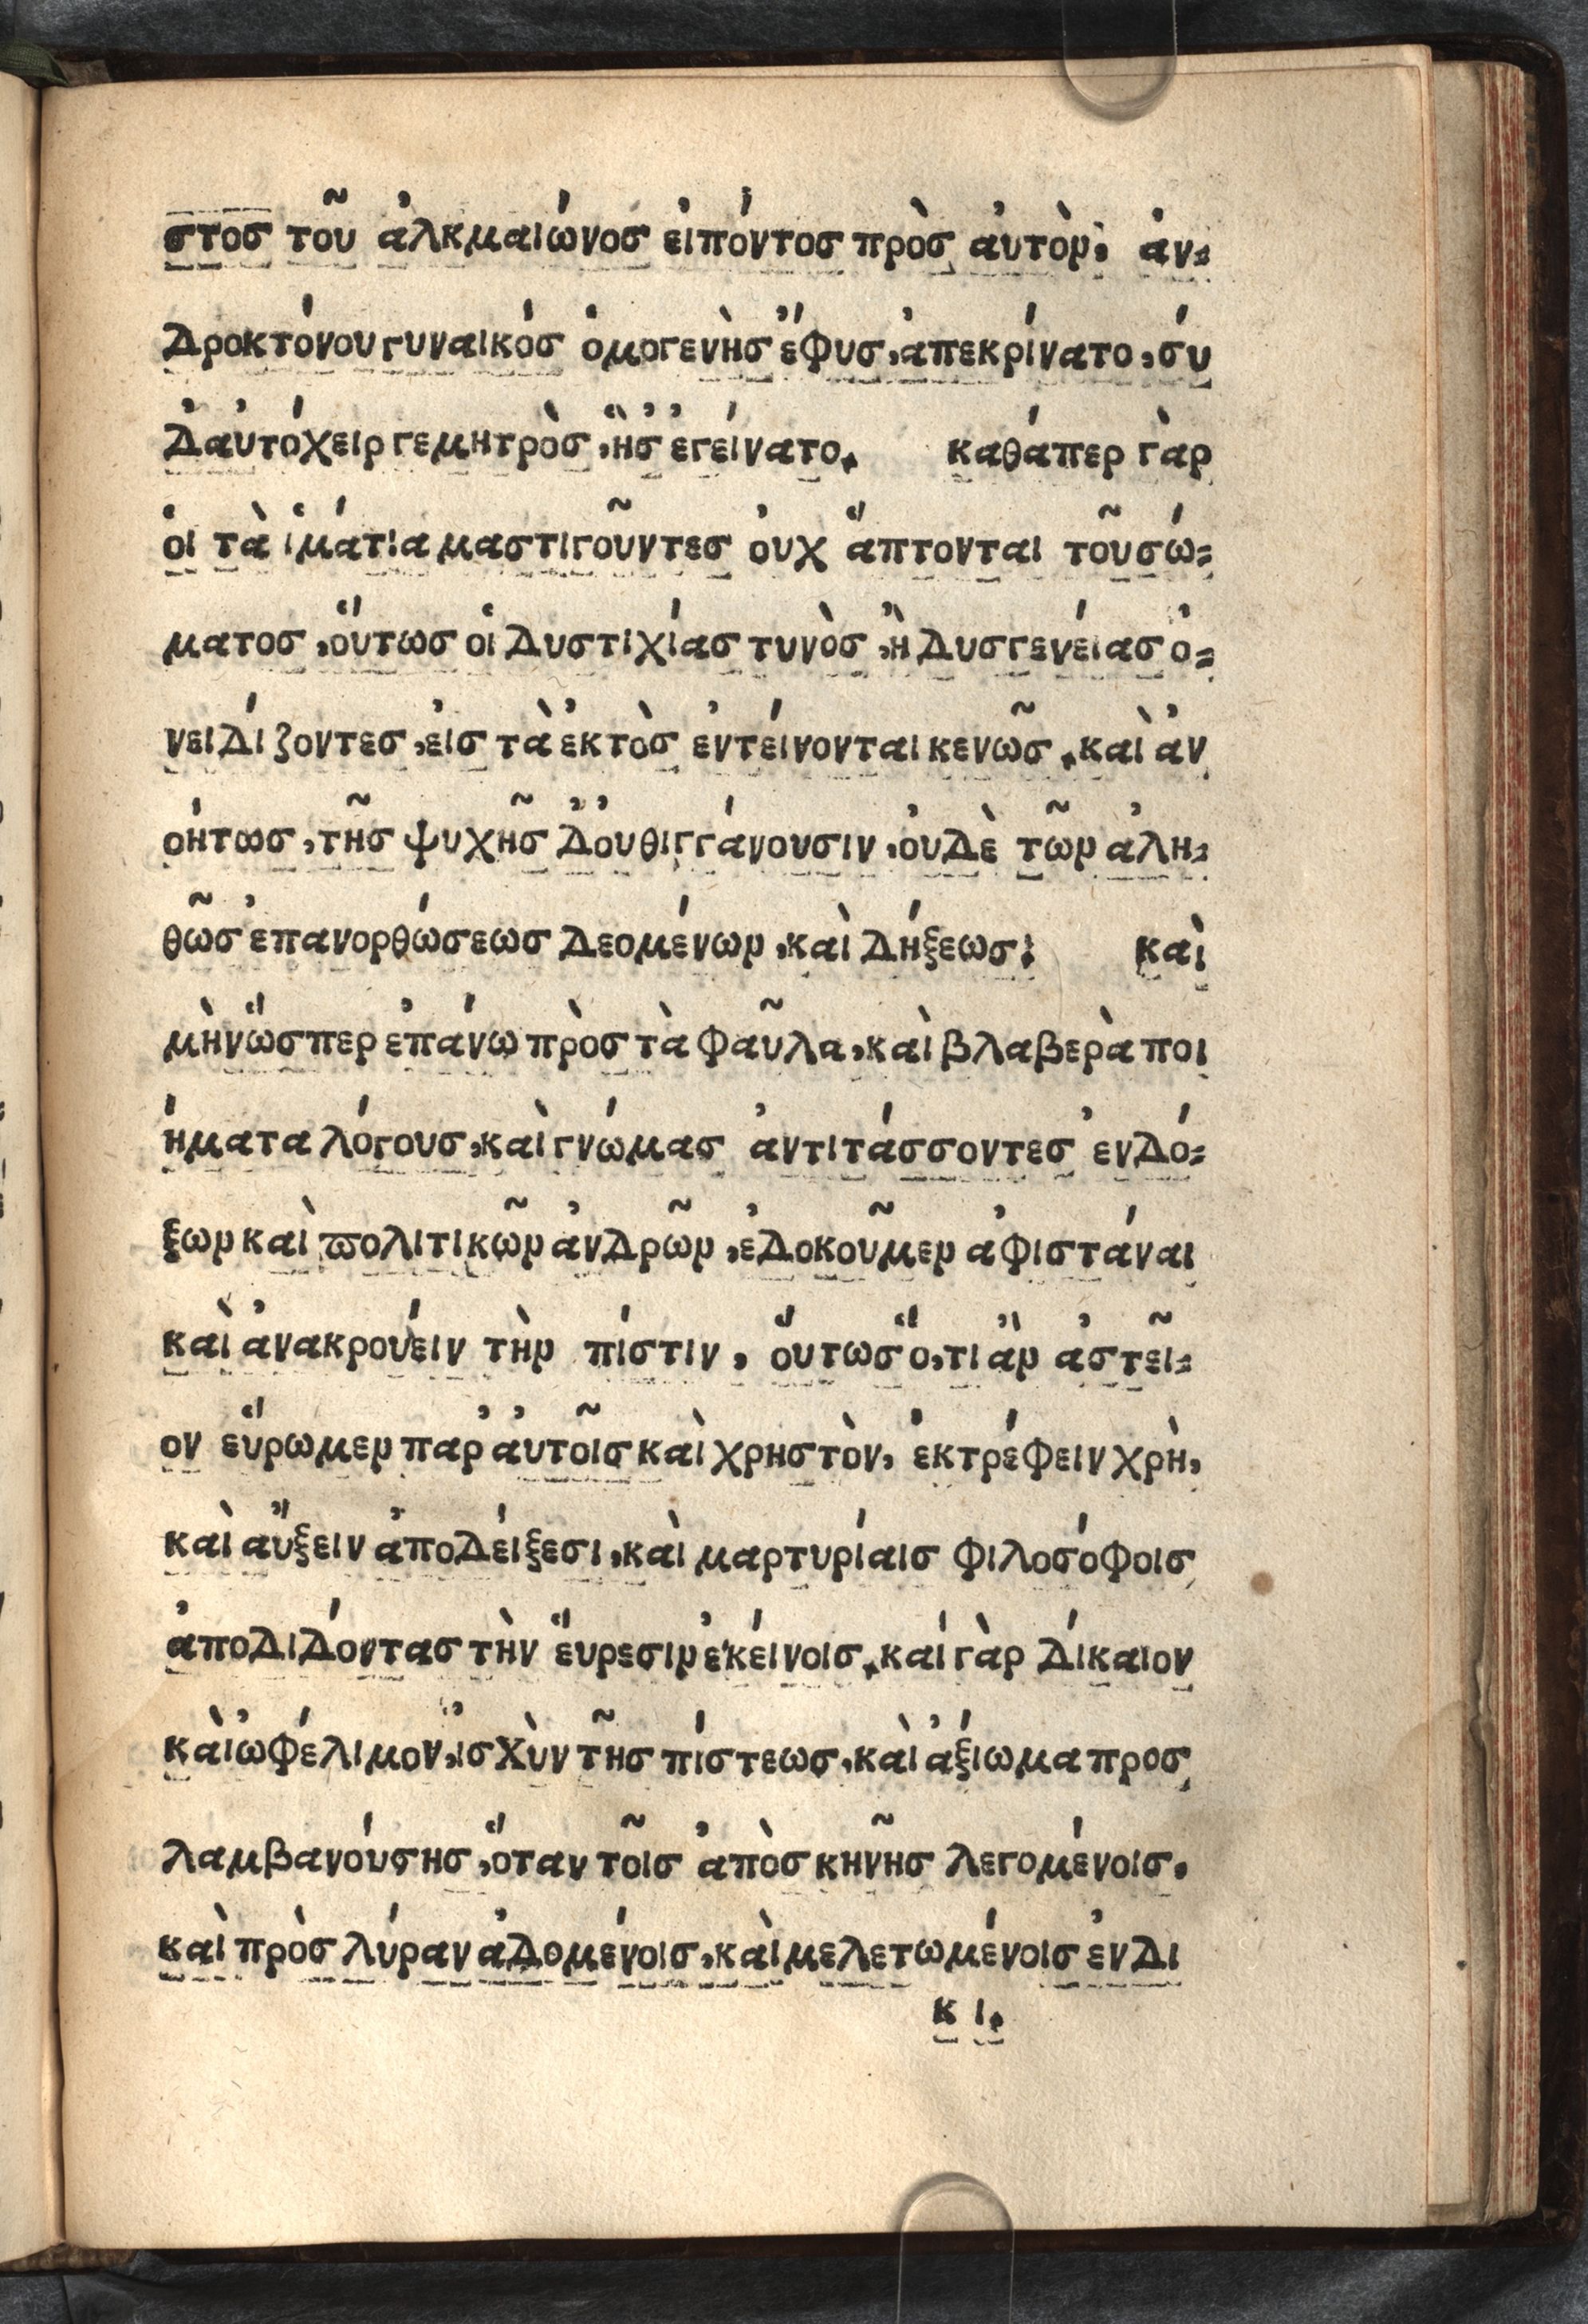 στοσ τοῦ ἀλκμαιώνοσ ἐιπόντοσ πρὸσ ἀυτὸν· ἀν=
Δροκτόνου γυναικόσ ὁμογενὴσ ἔφυσ, ἀπεκρίνατο, σύ
Δ᾽ἀυτόχειρ γε μητρὸσ, ἣσ ἐγείνατο. καθάπερ γὰρ
ὁι τὰ ἱμάτια μαστιγοῦντεσ ὀυχ ἅπτονται τοῦ σώ=
ματοσ, ὅυτωσ ὁι Δυστιχίασ τυνὸσ, ἢ Δυσγενείασ ὀ=
νειΔίζοντεσ, ἐισ τὰ ἐκτὸσ ἐντείνονται κενῶσ. καὶ ἀν
οήτωσ, τῆσ ψυχῆσ Δ᾽ὀυ θιγγάνουσιν, ὀυΔὲ τῶν ἀλη=
θῶσ ἐπανορθώσεωσ Δεομένων, καὶ Δήξεωσ: καὶ
μὴν ὥσπερ ἐπάνω πρὸσ τὰ φαῦλα, καὶ βλαβερὰ ποι
ήματα λόγουσ, καὶ γνώμασ ἀντιτάσσοντεσ ἐνΔό=
ξων καὶ πολιτικῶν ἀνΔρῶν, ἐΔοκοῦμεν ἀφιστάναι
καὶ ἀνακρούειν τὴν πίστιν, ὅυτωσ ὅ,τι ἂν ἀστεῖ=
ον ἕυρωμεν παρ᾽ἀυτοῖσ καὶ χρηστὸν, ἐκτρέφειν χρὴ,
καὶ ἄυξειν ἀποΔείξεσι, καὶ μαρτυρίαισ φιλοσόφοισ
ἀποΔιΔόντασ τὴν ἕυρεσιν ἐκείνοισ. καί γὰρ Δίκαιον
καὶ ὠφέλιμον, ἰσχὺν τῆσ πίστεωσ, καὶ ἀξίωμα προσ
λαμβανούσησ, ὅταν τοῖσ ἀπὸ σκηνῆσ λεγομένοισ,
καὶ πρὸσ λύραν ἀΔομένοισ, καὶ μελετωμένοισ ἐν Δι
κ ι.